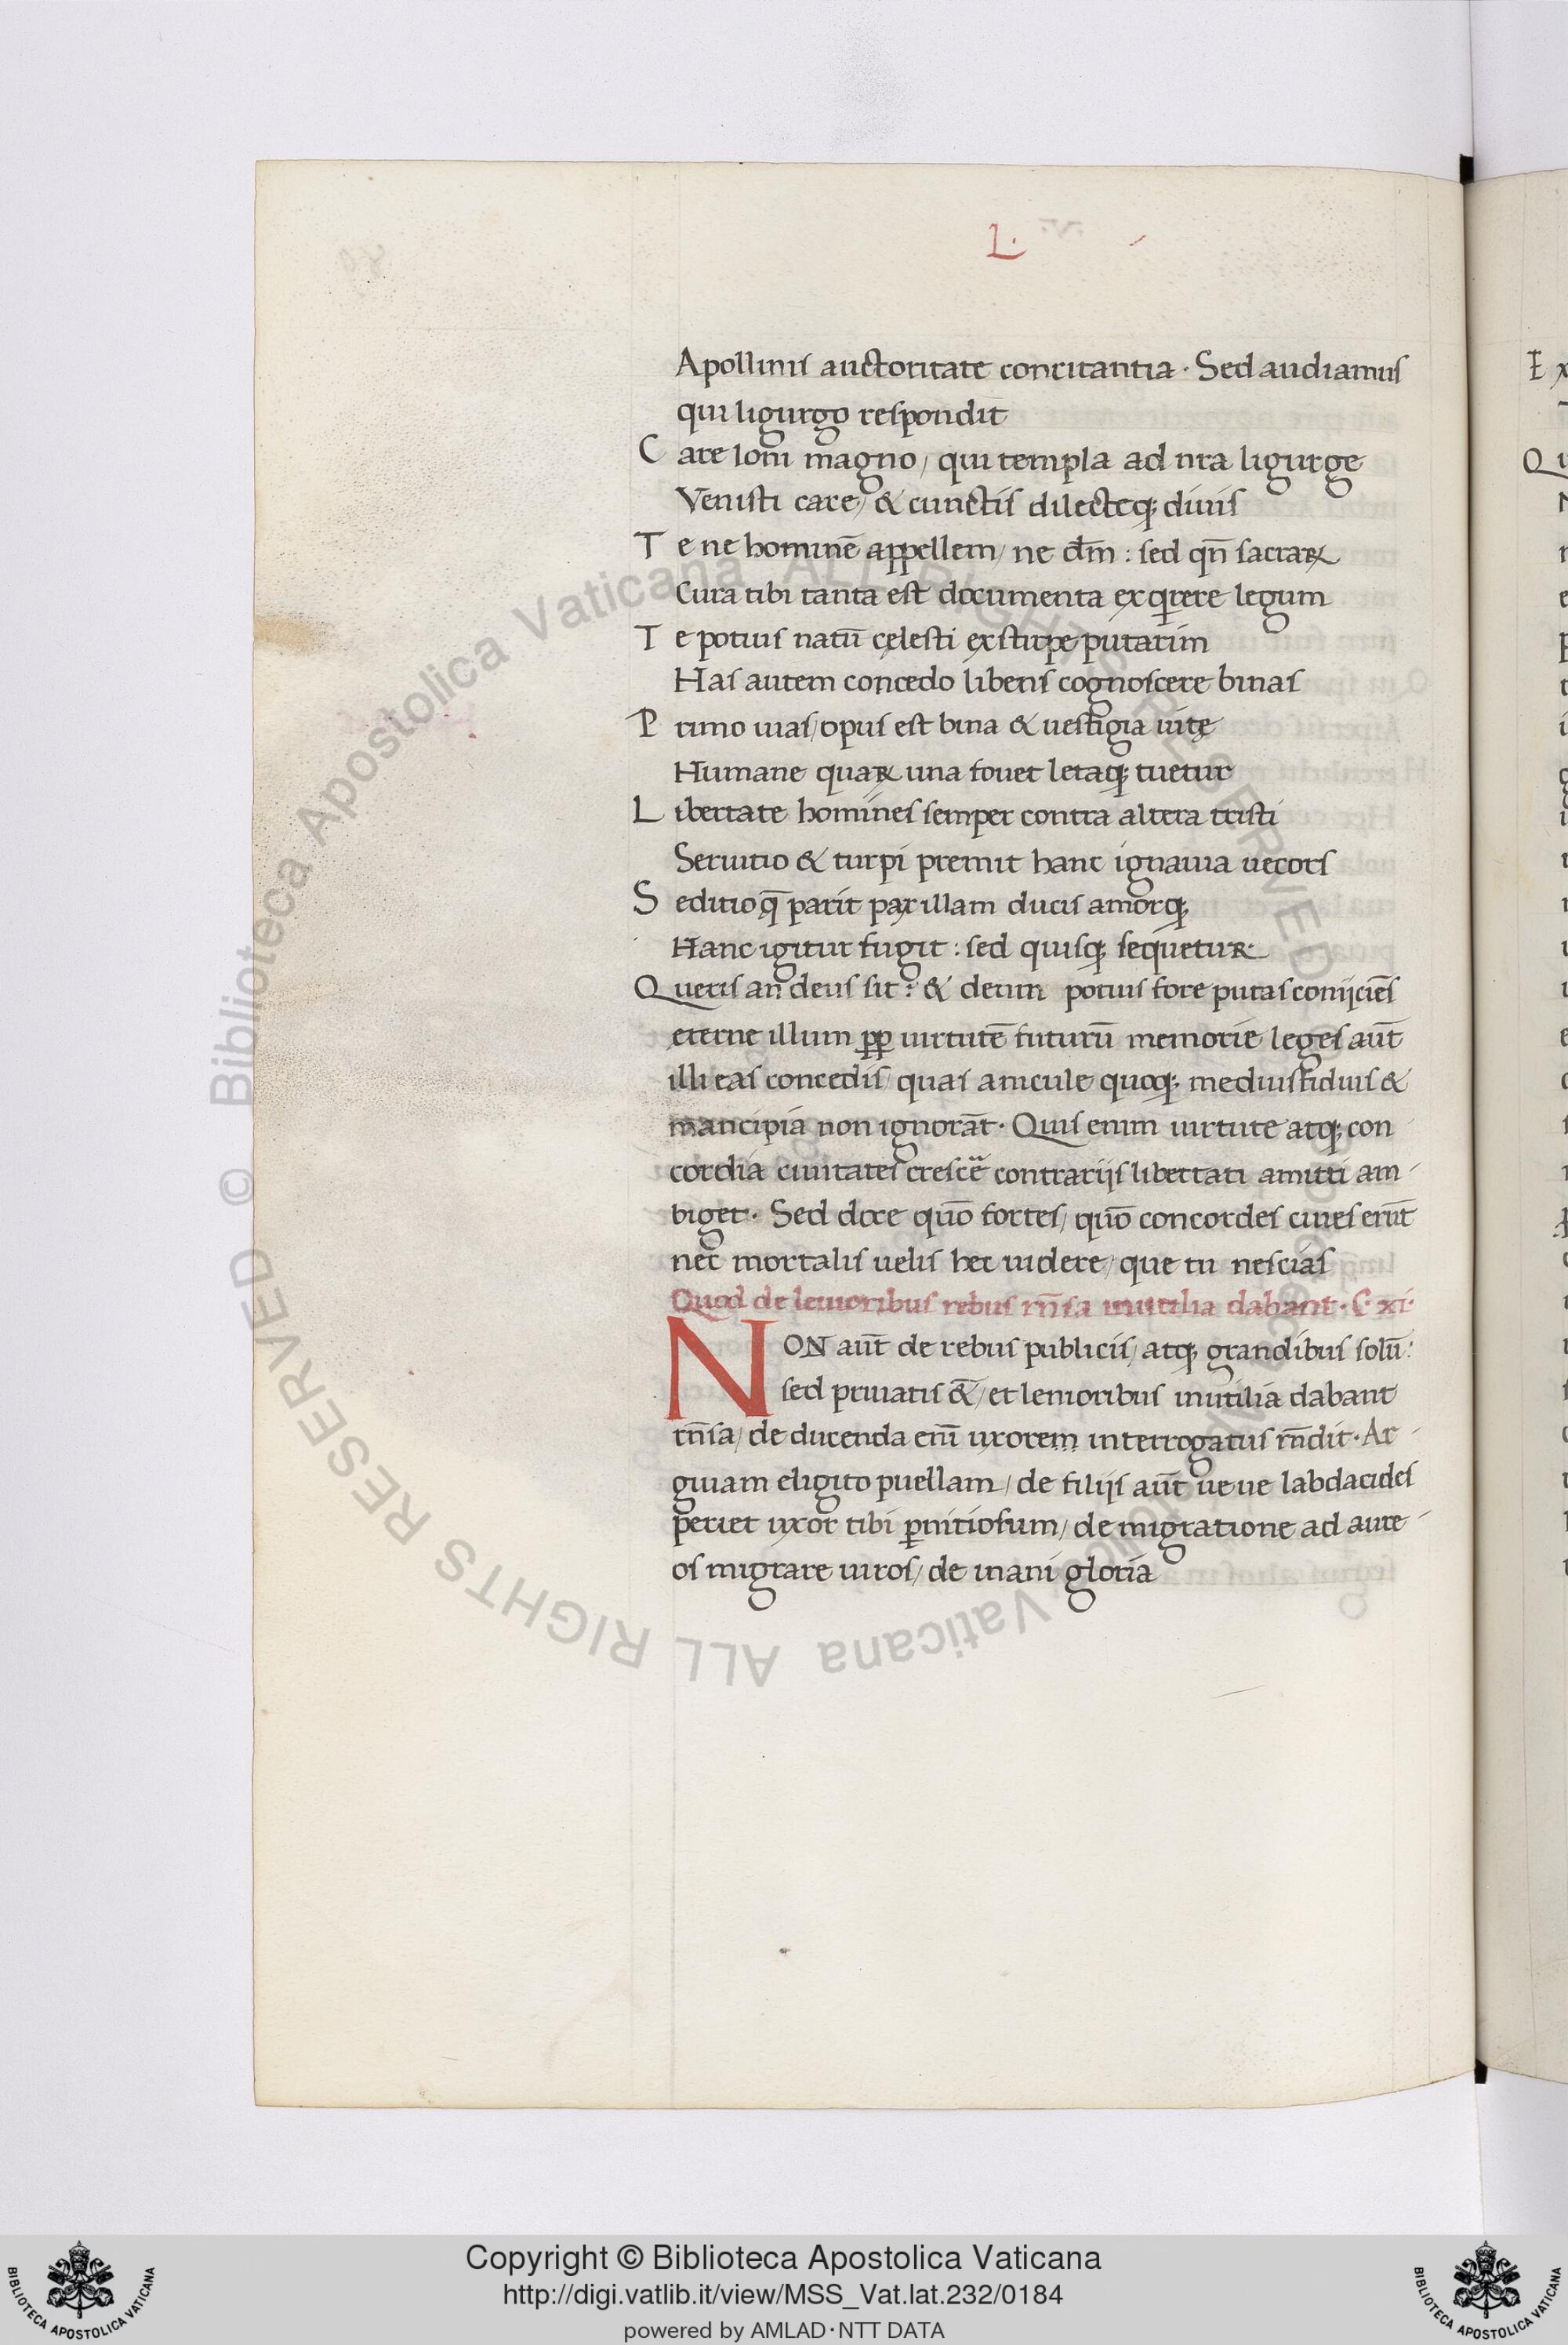 L.
Apollinis auctoritate concitantia · Sed audiamus
qui ligurgo respondit
Care Ioui magno / qui templa ad nr̄a ligurge
Venisti care / & cunctis dilecteq; diuis
Te ne hominē appellem / ne dm̄ : sed qn̄ sacraꝝ
Cura tibi tanta est documenta exqrere legum
Te potius natū cęlesti ex stirpe putarim
Has autem concedo libens cognoscere binas
Primo uias / opus est bina & uestigia uitę
Humane quaꝝ una fouet letaq; tuetur
Libertate homines semper contra altera tristi
Seruitio & turpi premit hanc ignauia uecors
Seditioq̄ parit pax illam ducis amorq;
Hanc igitur fugit : sed quisq; sequetur
Queris an deus sit : & deum potius fore putas conijciēs
eterne illum pp uirtutē futurū memorie leges aūt
illi eas concedis / quas anicule quoq; mediusfidius &
mancipia non ignorāt · Quis enim uirtute atq; con
cordia ciuitates crescē contrarijs libertati amitti am
biget · Sed doce quō fortes / quō concordes ciues erūt
nec mortalis uelis hec uidere / que tu nescias
Quod de leuioribus rebus rn̄sa inutilia dabant · C · xi ·
NON aūt de rebus publicis / atq; grandibus solū :
sed priuatis &̄ / et leuioribus inutilia dabant
rn̄sa / de ducenda enī uxorem interrogatus rn̄dit · Ar
guiam eligito puellam / de filijs aūt ue ue labdacides
periet uxor tibi ꝑnitiosum / de migratione ad aure
os migrare uiros / de inani gloria
© Biblioteca Apostolica Vaticana ALL RIGHTS RESERVED
© Biblioteca Apostolica Vaticana ALL RIGHTS RESERVED
Copyright © Biblioteca Apostolica Vaticana
http://digi.vatlib.it/view/MSS_Vat.lat.232/0184
powered by AMLAD·NTT DATA
BIBLIOTECA APOSTOLICA VATICANA
BIBLIOTECA APOSTOLICA VATICANA